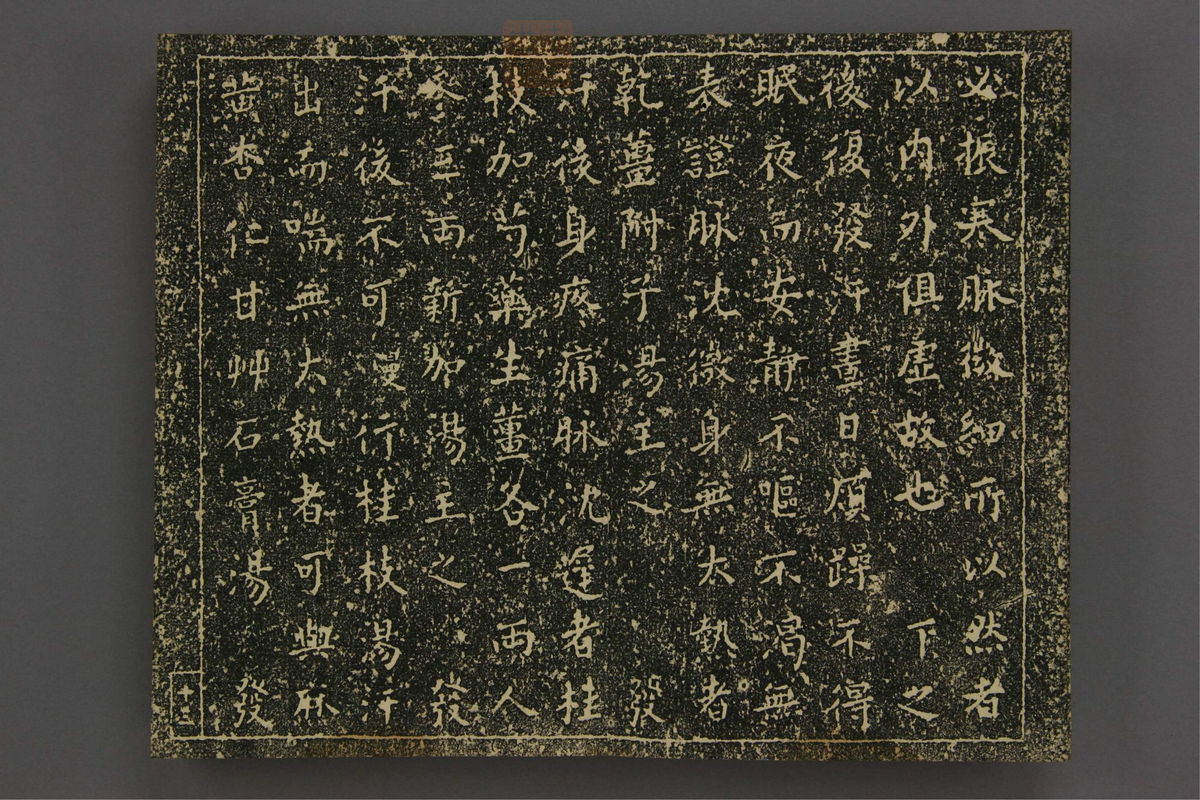 必振寒脉微細所以然者
以内外俱虛故也　下之
後復發汗晝日煩躁不得
眠夜而安靜不嘔不渴無
表證脉沈微身無大熱者
乾薑附子湯主之　發
汗後身疼痛脉沈遲者桂
枝加芍藥生薑各一兩人
參三兩新加湯主之　發
汗後不可更行桂枝湯汗
出而喘無大熱者可與麻
黄杏仁甘艸石膏湯　發
十三